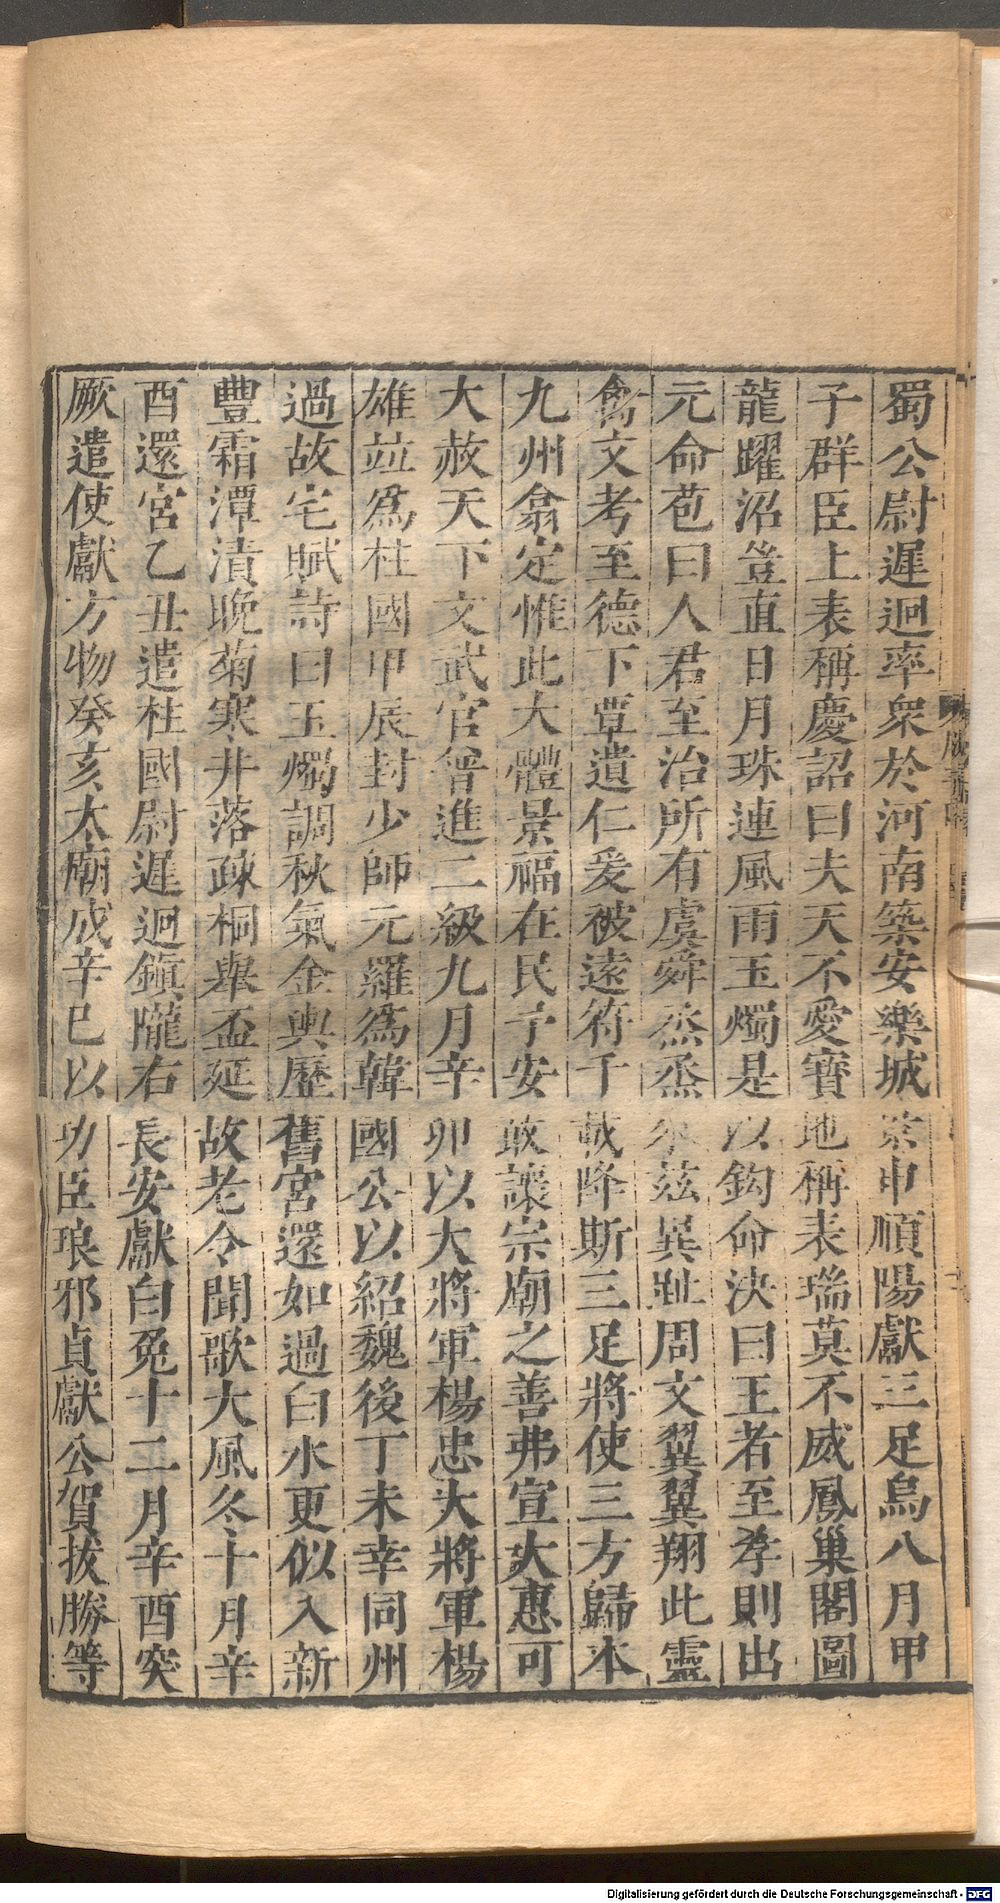 蜀公尉遲迥率衆於河南築安樂城景申順陽獻三足烏八月甲
子群臣上表稱慶詔曰夫天不愛寶地稱表瑞莫不威鳳巢閣圖
龍躍沼豈直日月珠連風雨玉燭是以鈎命決曰王者至孝則出
元命苞曰人君至治所有虞舜烝烝來茲異趾周文翼翼翔此靈
禽文考至德下覃遺仁爰被遠符千載降斯三足將使三方歸本
九州翕定惟此大體景福在民予安敢讓宗廟之善弗宣大惠可
大赦天下文武官普進二級九月辛卯以大將軍楊忠大將軍楊
雄竝爲柱國甲辰封少師元羅爲韓國公以紹魏後丁未幸同州
過故宅賦詩曰玉燭調秋氣金輿歷舊宮還如過白水更似入新
豐霜潭漬晚菊寒井落疎桐舉盃延故老令聞歌大風冬十月辛
酉還宮乙丑遣柱國尉遲迥鎮隴右長安獻白兔十二月辛酉突
厥遣使獻方物癸亥太廟成辛巳以功臣琅邪貞獻公賀拔勝等
Digitalisierung gefördert durch die Deutsche Forschungsgemeinschaft - DFG